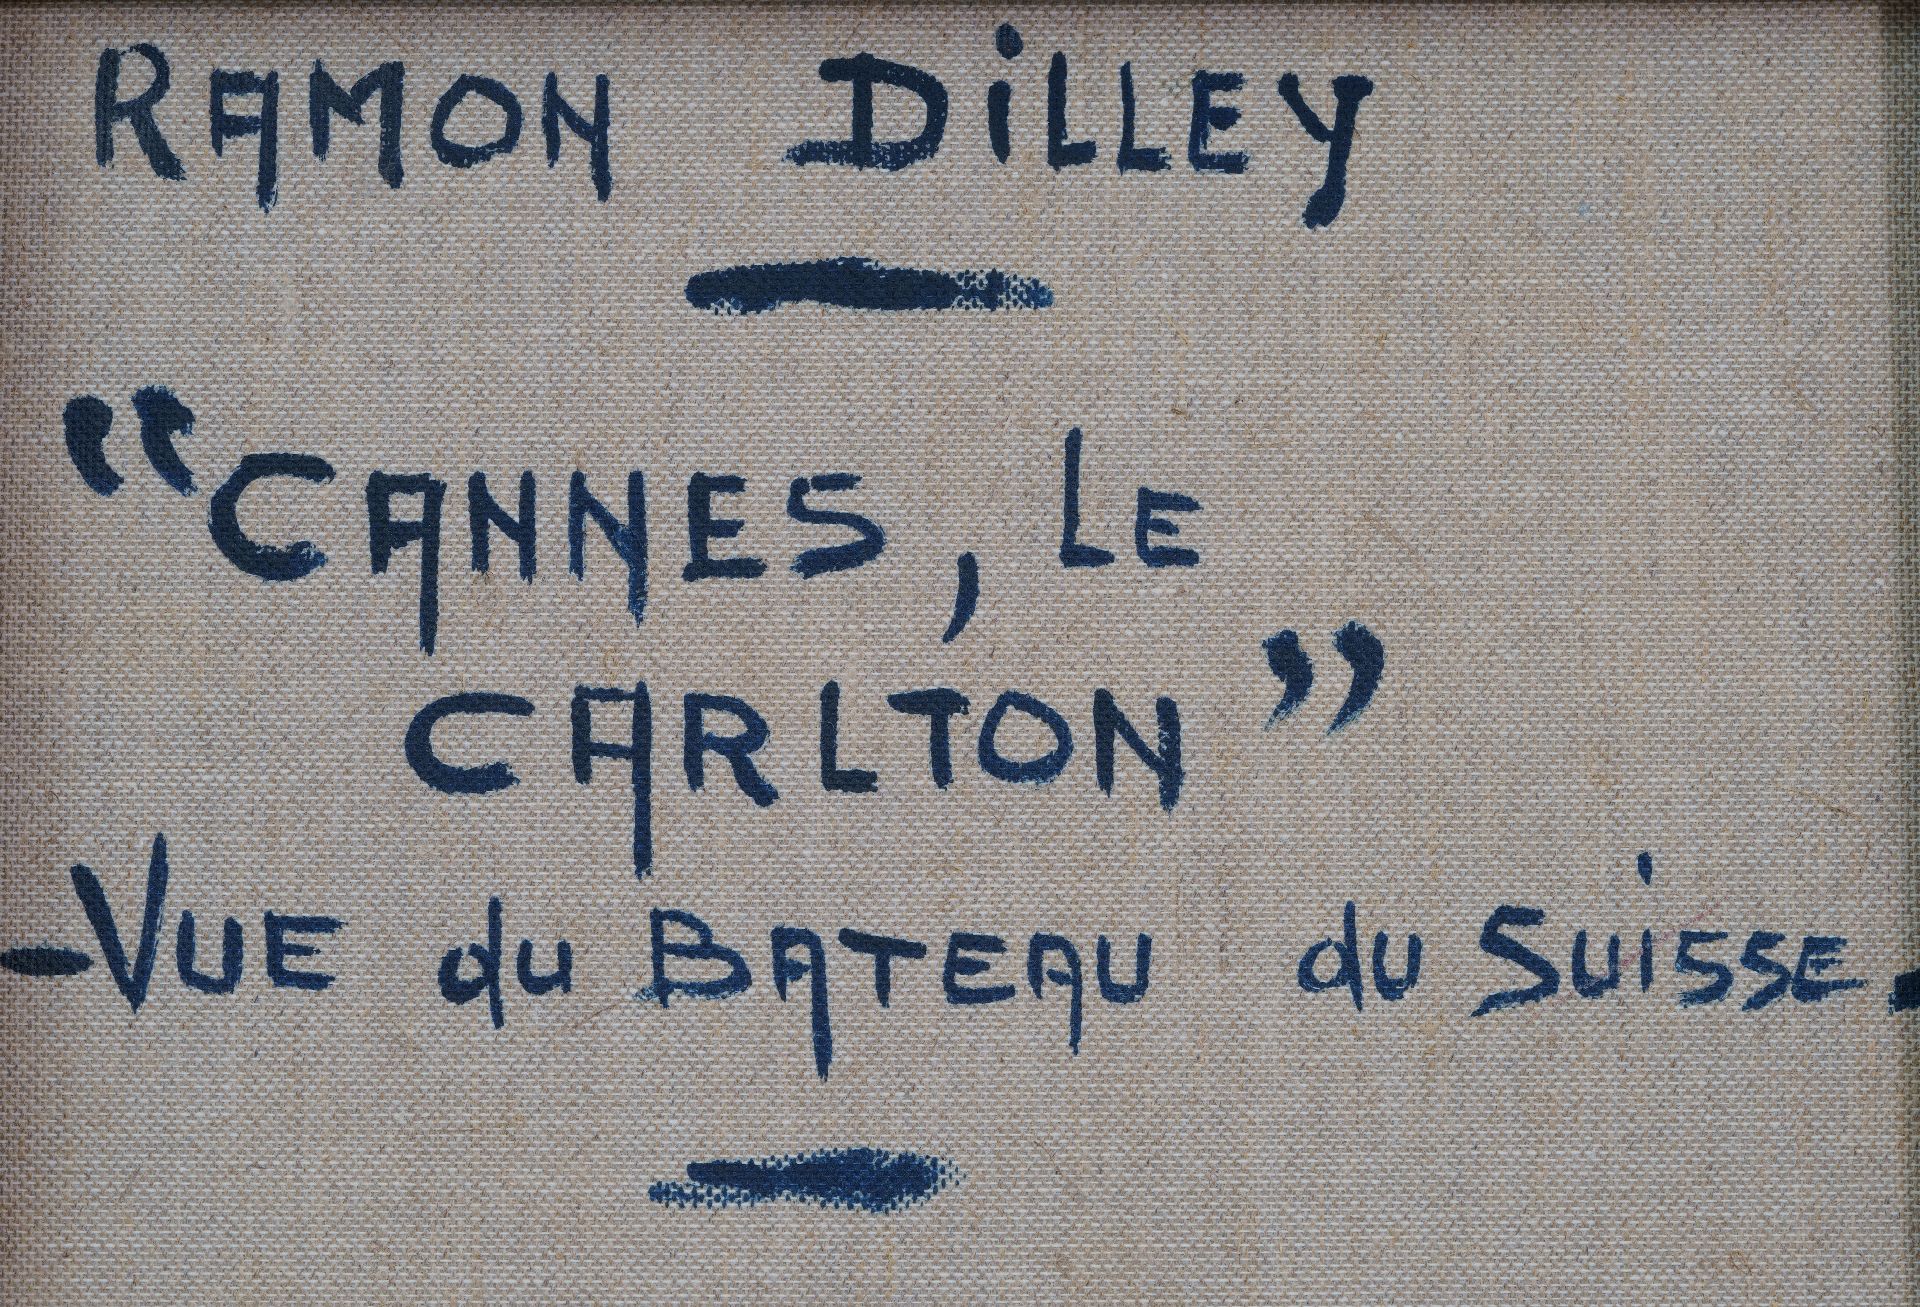 RAMON DiLLEY
“CANNES, LE
CARLTON”
- VUE du BATEAU du SUiSSE -